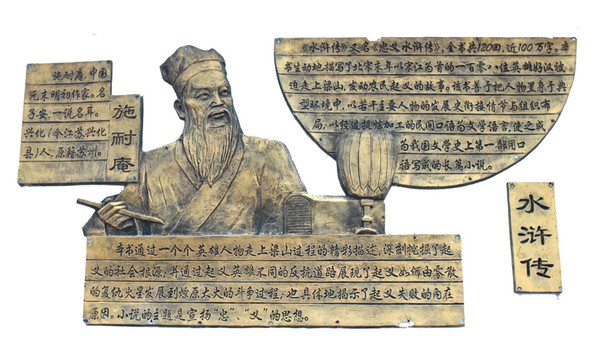 施耐庵，中国
元末明初作家。名
子安，一说名耳。
兴化（今江苏兴化
县）人，原籍苏州。
施耐庵
《水浒传》又名《忠义水浒传》，全书共120回，近100万字。本
书生动地描写了北宋末年以宋江为首的一百零八位英雄好汉被
逼走上梁山，发动农民起义的故事。该书善于把人物置身于典
型环境中，以若干主要人物的发展史衔接情节与组织布
局，以经过提炼加工的民间口语为文学语言，使之成
为我国文学史上第一部用口
语写成的长篇小说。
水浒传
本书通过一个个英雄人物走上梁山过程的精彩描述，深刻挖掘了起
义的社会根源，并通过起义英雄不同的反抗道路展现了起义如何由零散
的复仇火星发展到燎原大火的斗争过程，也具体地揭示了起义失败的内在
原因。小说的主题是宣扬“忠”、“义”的思想。